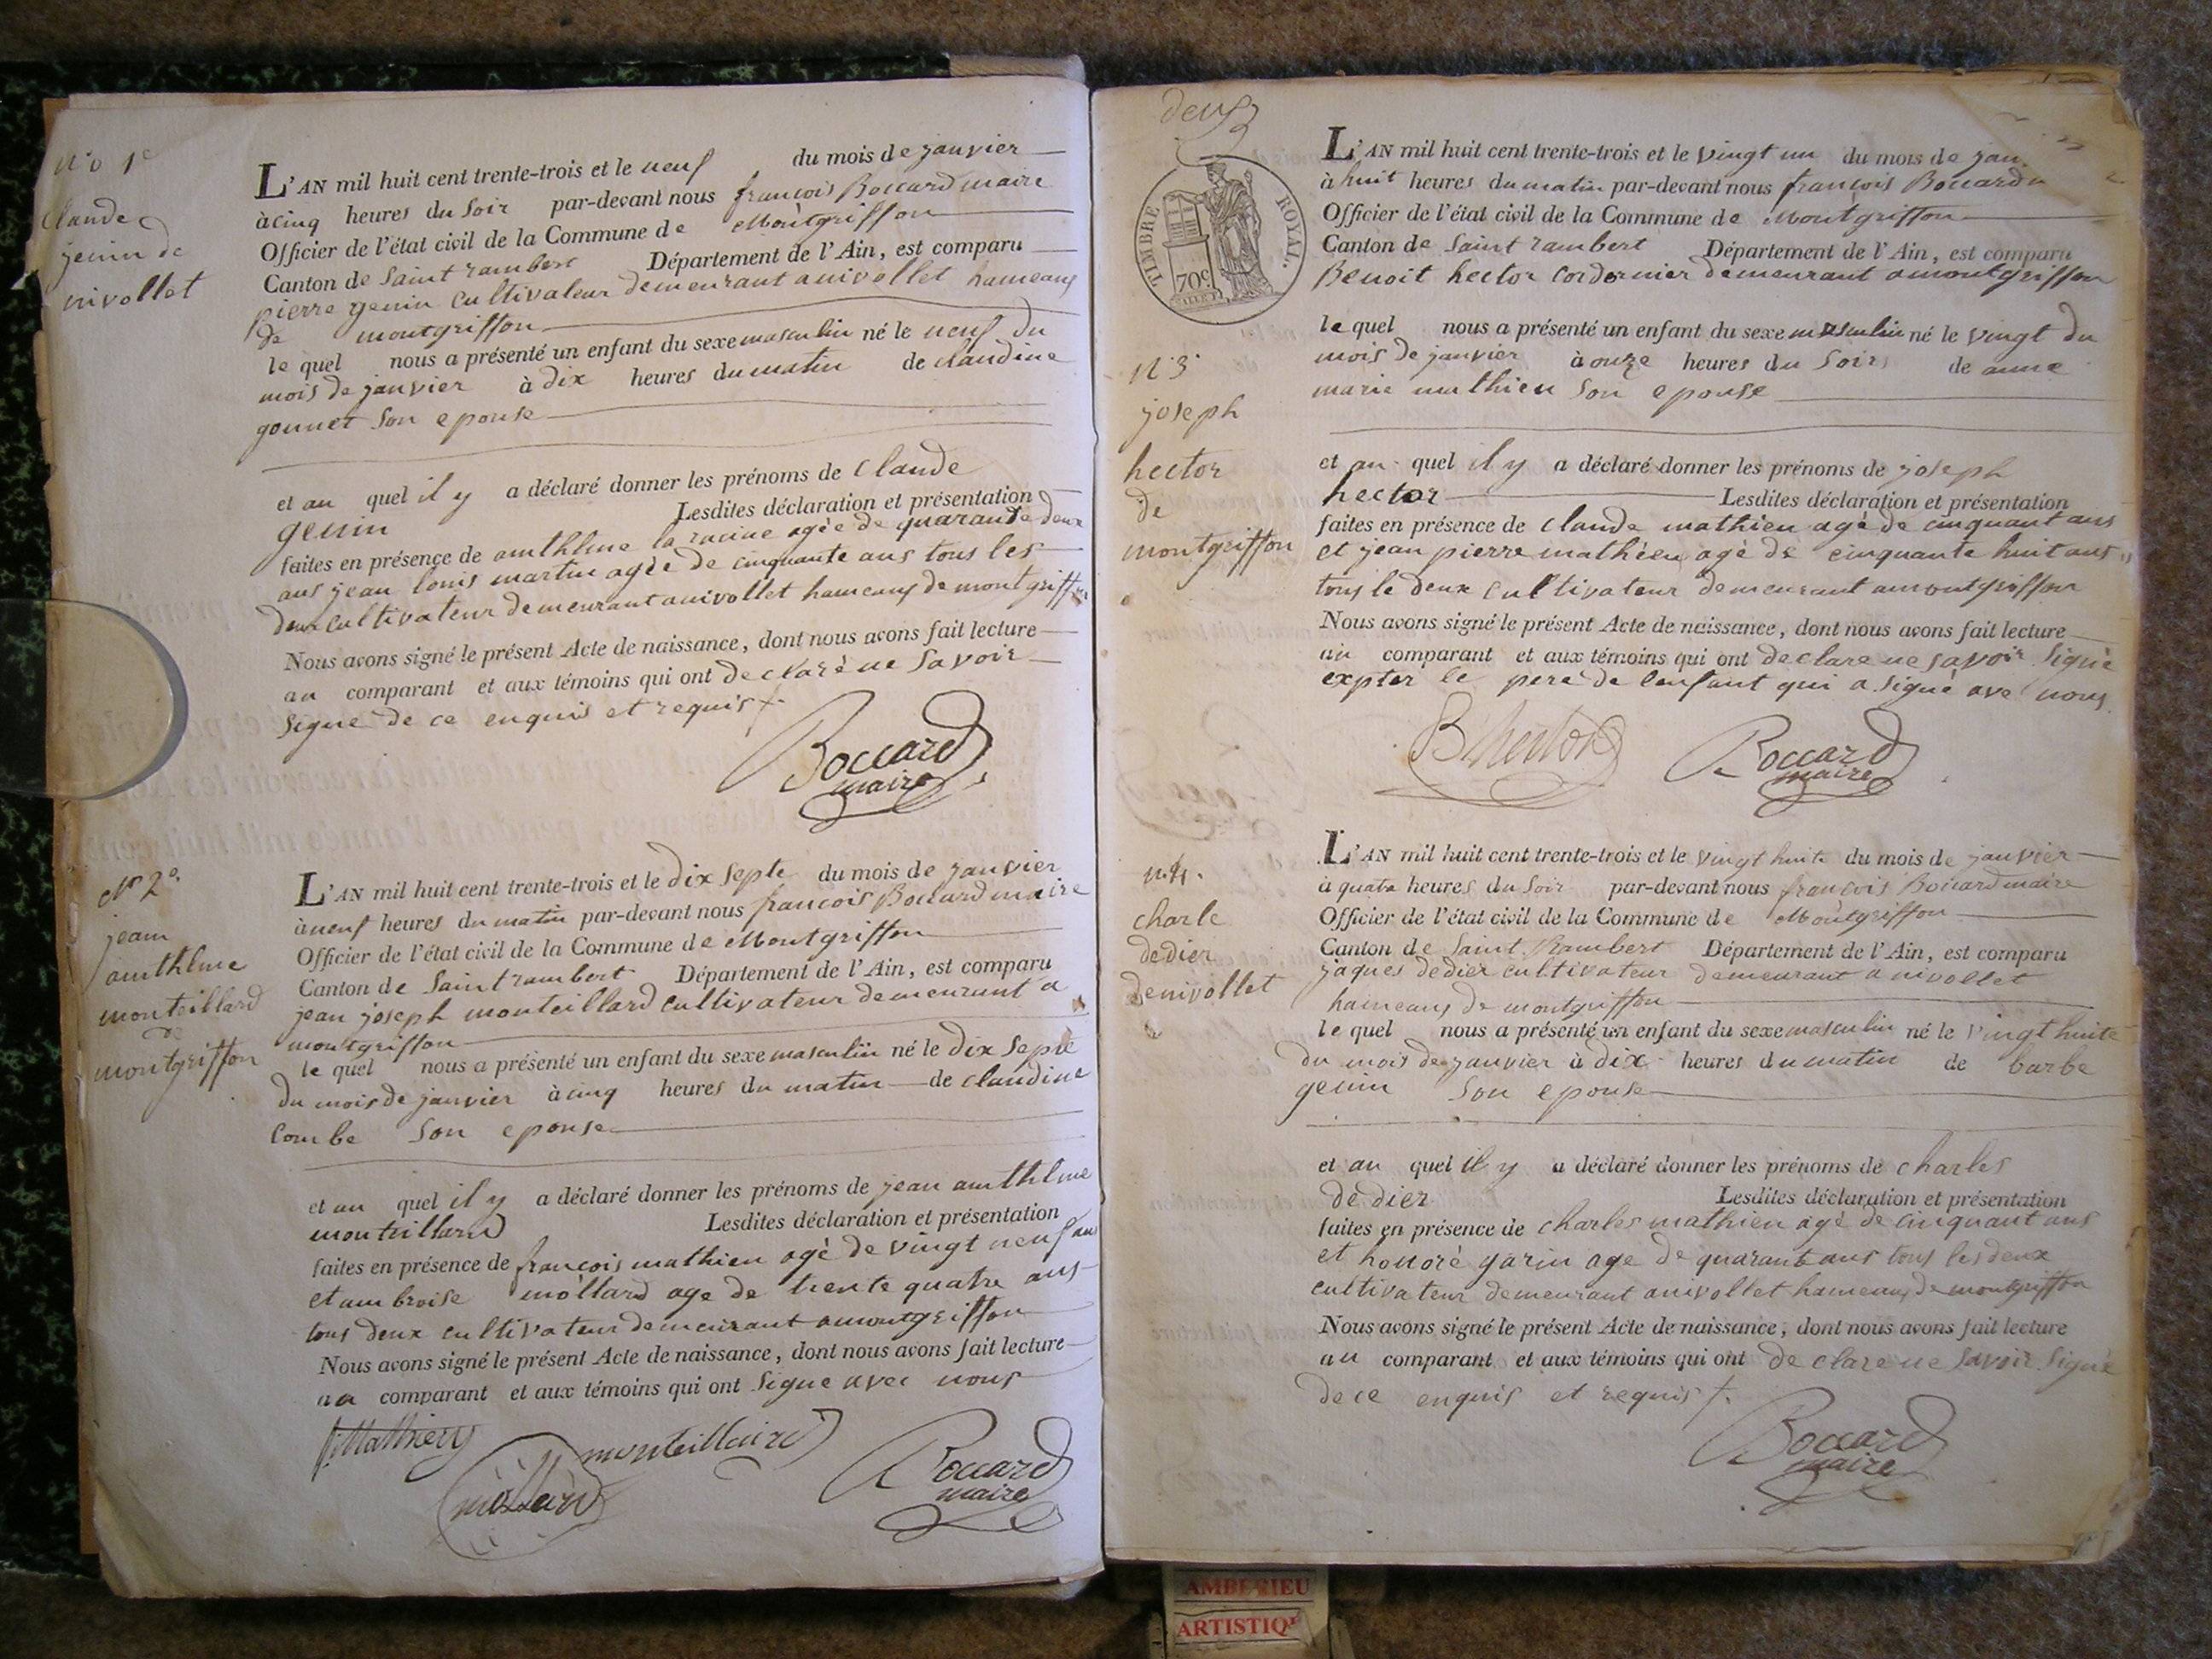 n.o 1e
Claude
jenin de
nivollet
L'AN mil huit cent trente-trois et le neuf du mois de janvier
à cinq heures du soir par-devant nous francois Boccard maire
Officier de l'état civil de la Commune de Montgriffon
Canton de Saint rambert Département de l'Ain, est comparu
pierre genin cultivateur demeurant a nivollet hameaux
de montgriffon
le quel nous a présenté un enfant du sexe masculin né le neuf du
mois de janvier à dix heures du matin de claudine
gonnet son epouse
et au quel il y a déclaré donner les prénoms de Claude
genin Lesdites déclaration et présentation
faites en présence de anthlme la racine agèe de quarante deux
ans jean louis martin agèe de cinquante ans tous les
deux cultivateur demeurant a nivollet hameaux de montgriffon
Nous avons signé le présent Acte de naissance, dont nous avons fait lecture
au comparant et aux témoins qui ont declarè ne savoir
signe de ce enquis et requis
Boccard
maire
No 2e.
jean
anthlme
monteillard
de
montgriffon
L'AN mil huit cent trente-trois et le dix septe du mois de janvier
à neuf heures du matin par-devant nous francois Boccard maire
Officier de l'état civil de la Commune de Montgriffon
Canton de Saint rambert Département de l'Ain, est comparu
jean joseph monteillard cultivateur demeurant a
montgriffon
le quel nous a présenté un enfant du sexe masculin né le dix septe
du mois de janvier à cinq heures du matin de claudine
Combe son epouse
et au quel il y a déclaré donner les prénoms de jean anthlme
monteillard Lesdites déclaration et présentation
faites en présence de francois mathieu agè de vingt neuf ans
et ambroise mollard age de trente quatre ans
tous deux cultivateur demeurant a montgriffon
Nous avons signé le présent Acte de naissance, dont nous avons fait lecture
au comparant et aux témoins qui ont signe avec nous
Mathieu
monteillard
mollard
Boccard
maire
deux
TIMBRE ROYAL.
70c
n.3.
joseph
hector
de
montgriffon
L'AN mil huit cent trente-trois et le vingt un du mois de jan
à huit heures du matin par-devant nous francois Boccard
Officier de l'état civil de la Commune de Montgriffon
Canton de Saint rambert Département de l'Ain, est comparu
Benoit hector cordonnier demeurant a montgriffon
le quel nous a présenté un enfant du sexe masculin né le vingt du
mois de janvier à onze heures du soir de anne
marie mathieu son epouse
et au quel il y a déclaré donner les prénoms de joseph
hector Lesdites déclaration et présentation
faites en présence de claude mathieu agè de cinquant ans
et jean pierre mathieu agè de cinquante huit ans
tous le deux cultivateur demeurant a montgriffon
Nous avons signé le présent Acte de naissance, dont nous avons fait lecture
au comparant et aux témoins qui ont declare ne savoir signè
expter le pere de lenfant qui a signè ave nous
B hector
Boccard
maire
n.4.
charle
dedier
de nivollet
L'AN mil huit cent trente-trois et le vingt huite du mois de janvier
à quatr heures du soir par-devant nous francois Boccard maire
Officier de l'état civil de la Commune de Montgriffon
Canton de Saint Rambert Département de l'Ain, est comparu
jaques dedier cultivateur demeurant a nivollet
hameaux de montgriffon
le quel nous a présenté un enfant du sexe masculin né le vingt huite
du mois de janvier à dix heures du matin de barbe
genin son epouse
et au quel il y a déclaré donner les prénoms de charles
dedier Lesdites déclaration et présentation
faites en présence de charles mathieu agè de cinquant ans
et honorè garin age de quarante ans tous les deux
cultivateur demeurant a nivollet hameaux de montgriffon
Nous avons signé le présent Acte de naissance, dont nous avons fait lecture
au comparant et aux témoins qui ont declare ne savoir signè
de ce enquis et requis
Boccard
maire
AMBERIEU
ARTISTIQ